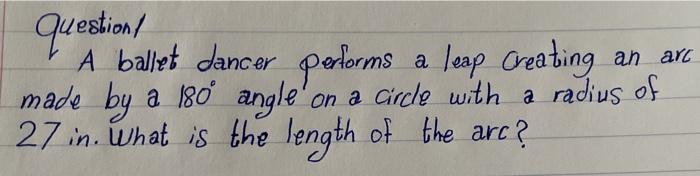 Question/
A ballet dancer performs a leap creating an arc
made by a 180° angle on a circle with a radius of
27 in. What is the length of the arc?